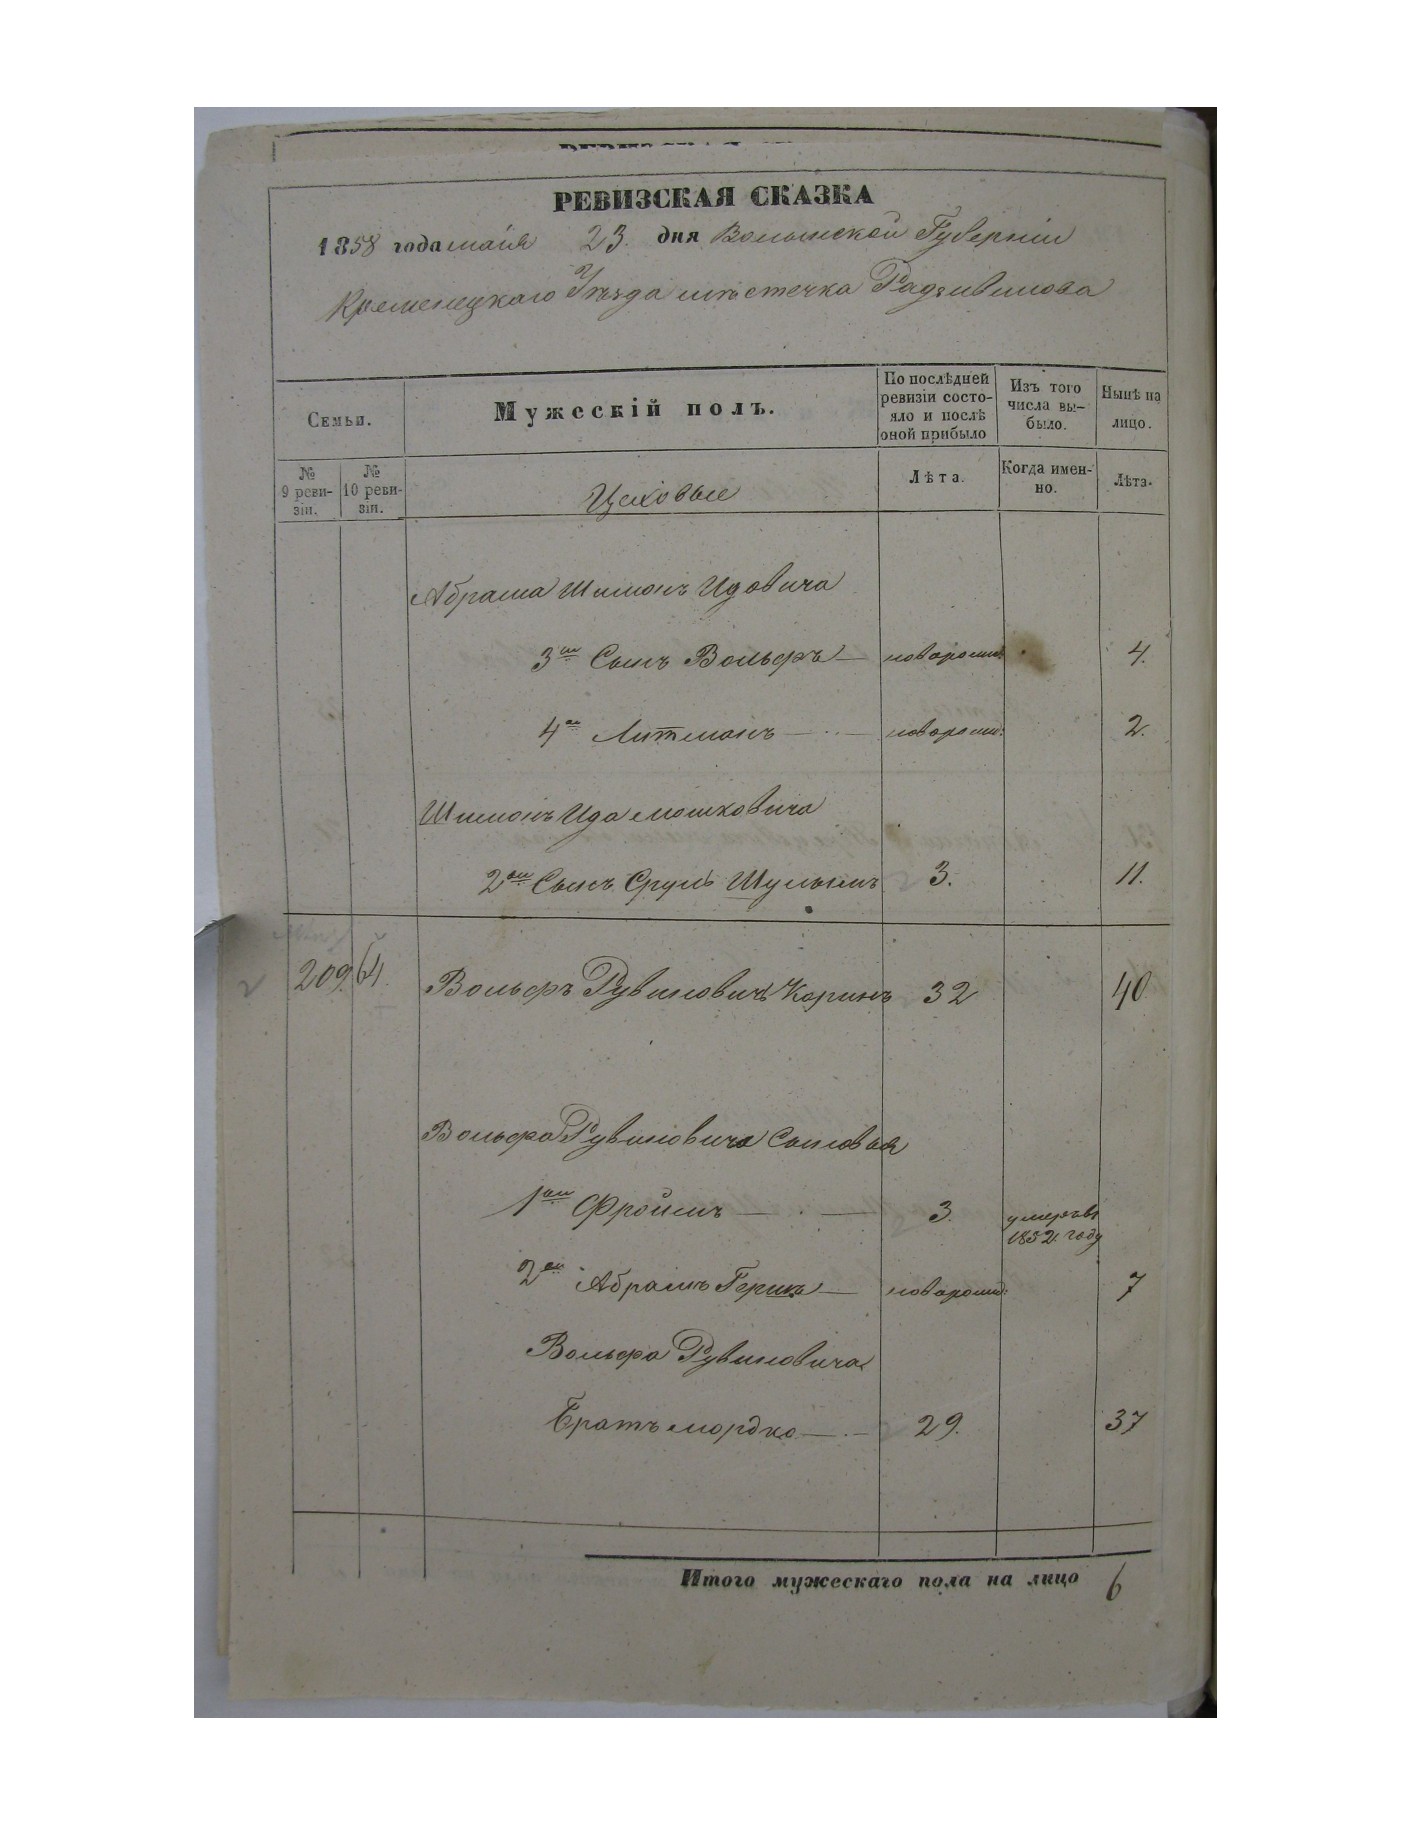 РЕВИЗСКАЯ СКАЗКА
1858 года маія 23. дня Волынской Губерніи
Кременецкаго Уѣзда мѣстечка Радзивилова
Семьи.
Мужескій полъ.
По послѣдней ревизіи состояло и послѣ оной прибыло
Изъ того числа вы-было.
Нынѣ на лицо.
№ 9 реви-зіи.
№ 10 реви-зіи.
Цеховые
Лѣта.
Когда имен-но.
Лѣта.
Абрама Шимонъ Идовича
3ій Сынъ Вольфъ — новорожд: 4.
4й Литманъ — новорожд: 2.
Шимонъ Ида Мошковича
2ой Сынъ Сруль Шулымъ 3. 11.
209. 64. Вольфъ Рувиновичъ Коринъ 32 40
Вольфа Рувиновича Сыновья
1ый Фроимъ — 3. умеръ въ
1852 году
2й Абрамъ Гершъ — новорожд: 7
Вольфа Рувиновича
Братъ Мордко — 29. 37
Итого мужескаго пола на лицо 6